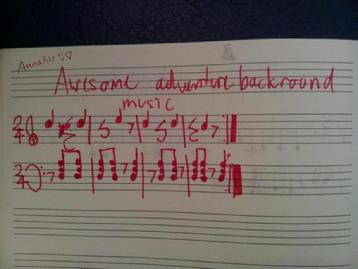 Annalise :) ♡
Awesome adventure backround
music
2/4
2/4